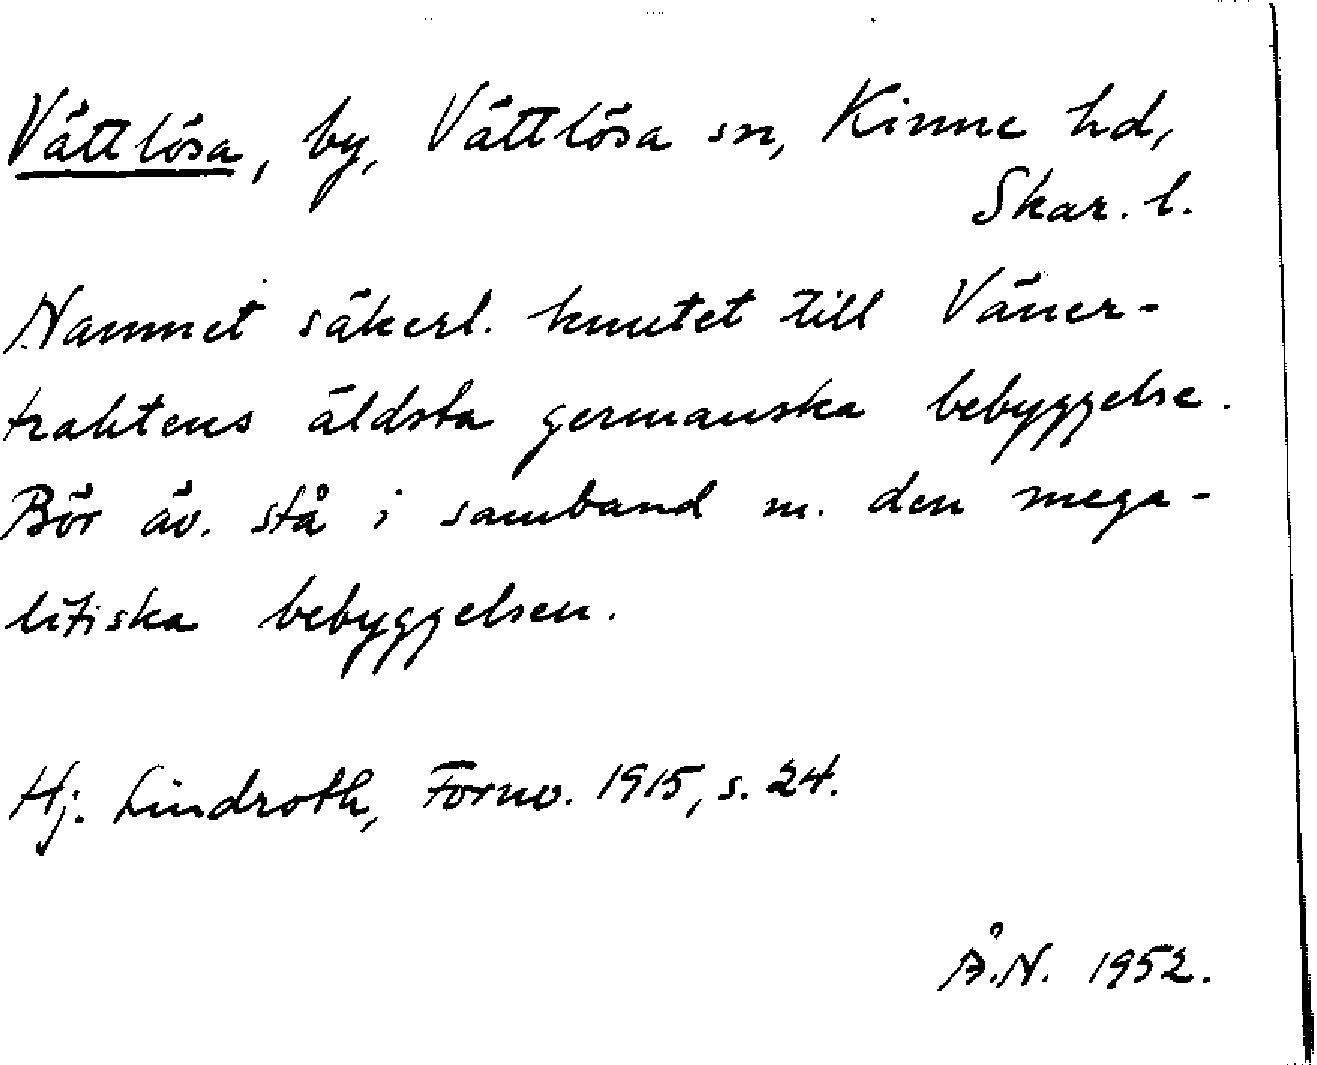 Vättlösa, by, Vättlösa sn, Kinne hd,
Skar. l.
Namnet säkerl. knutet till Väner-
traktens äldsta germanska bebyggelse.
Bör äv. stå i samband m. den mega-
litiska bebyggelsen.
Hj. Lindroth, Fornv. 1915, s. 24.
Å.N. 1952.